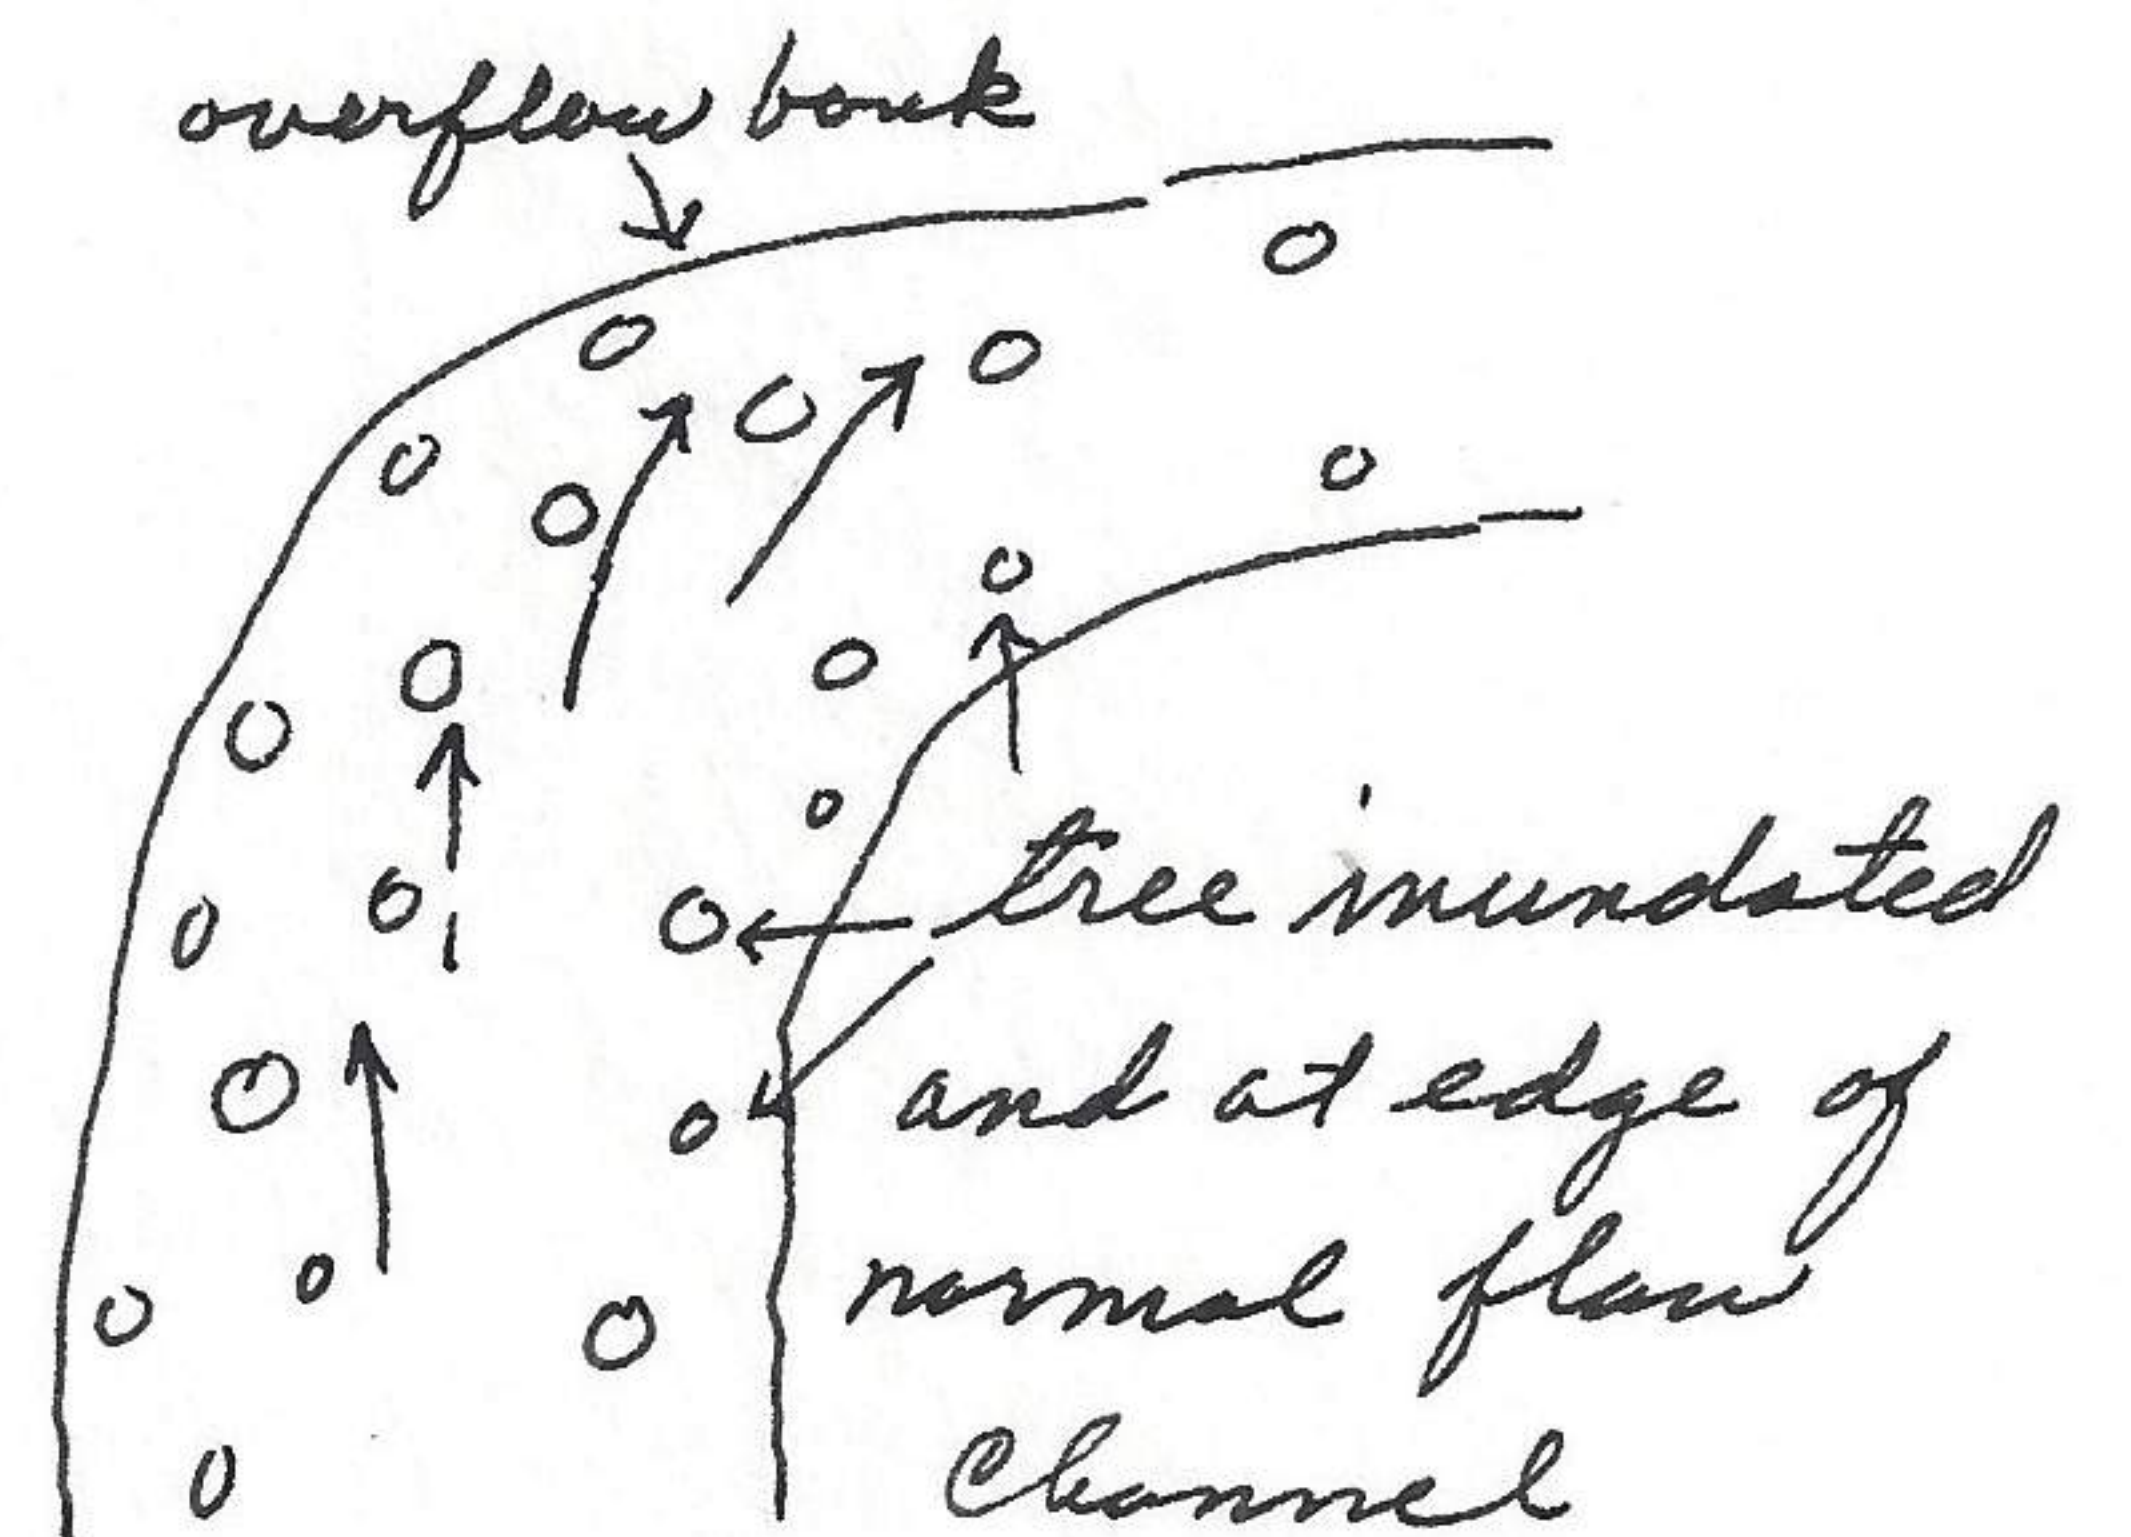 overflow bank
tree inundated
and at edge of
normal flow
Channel